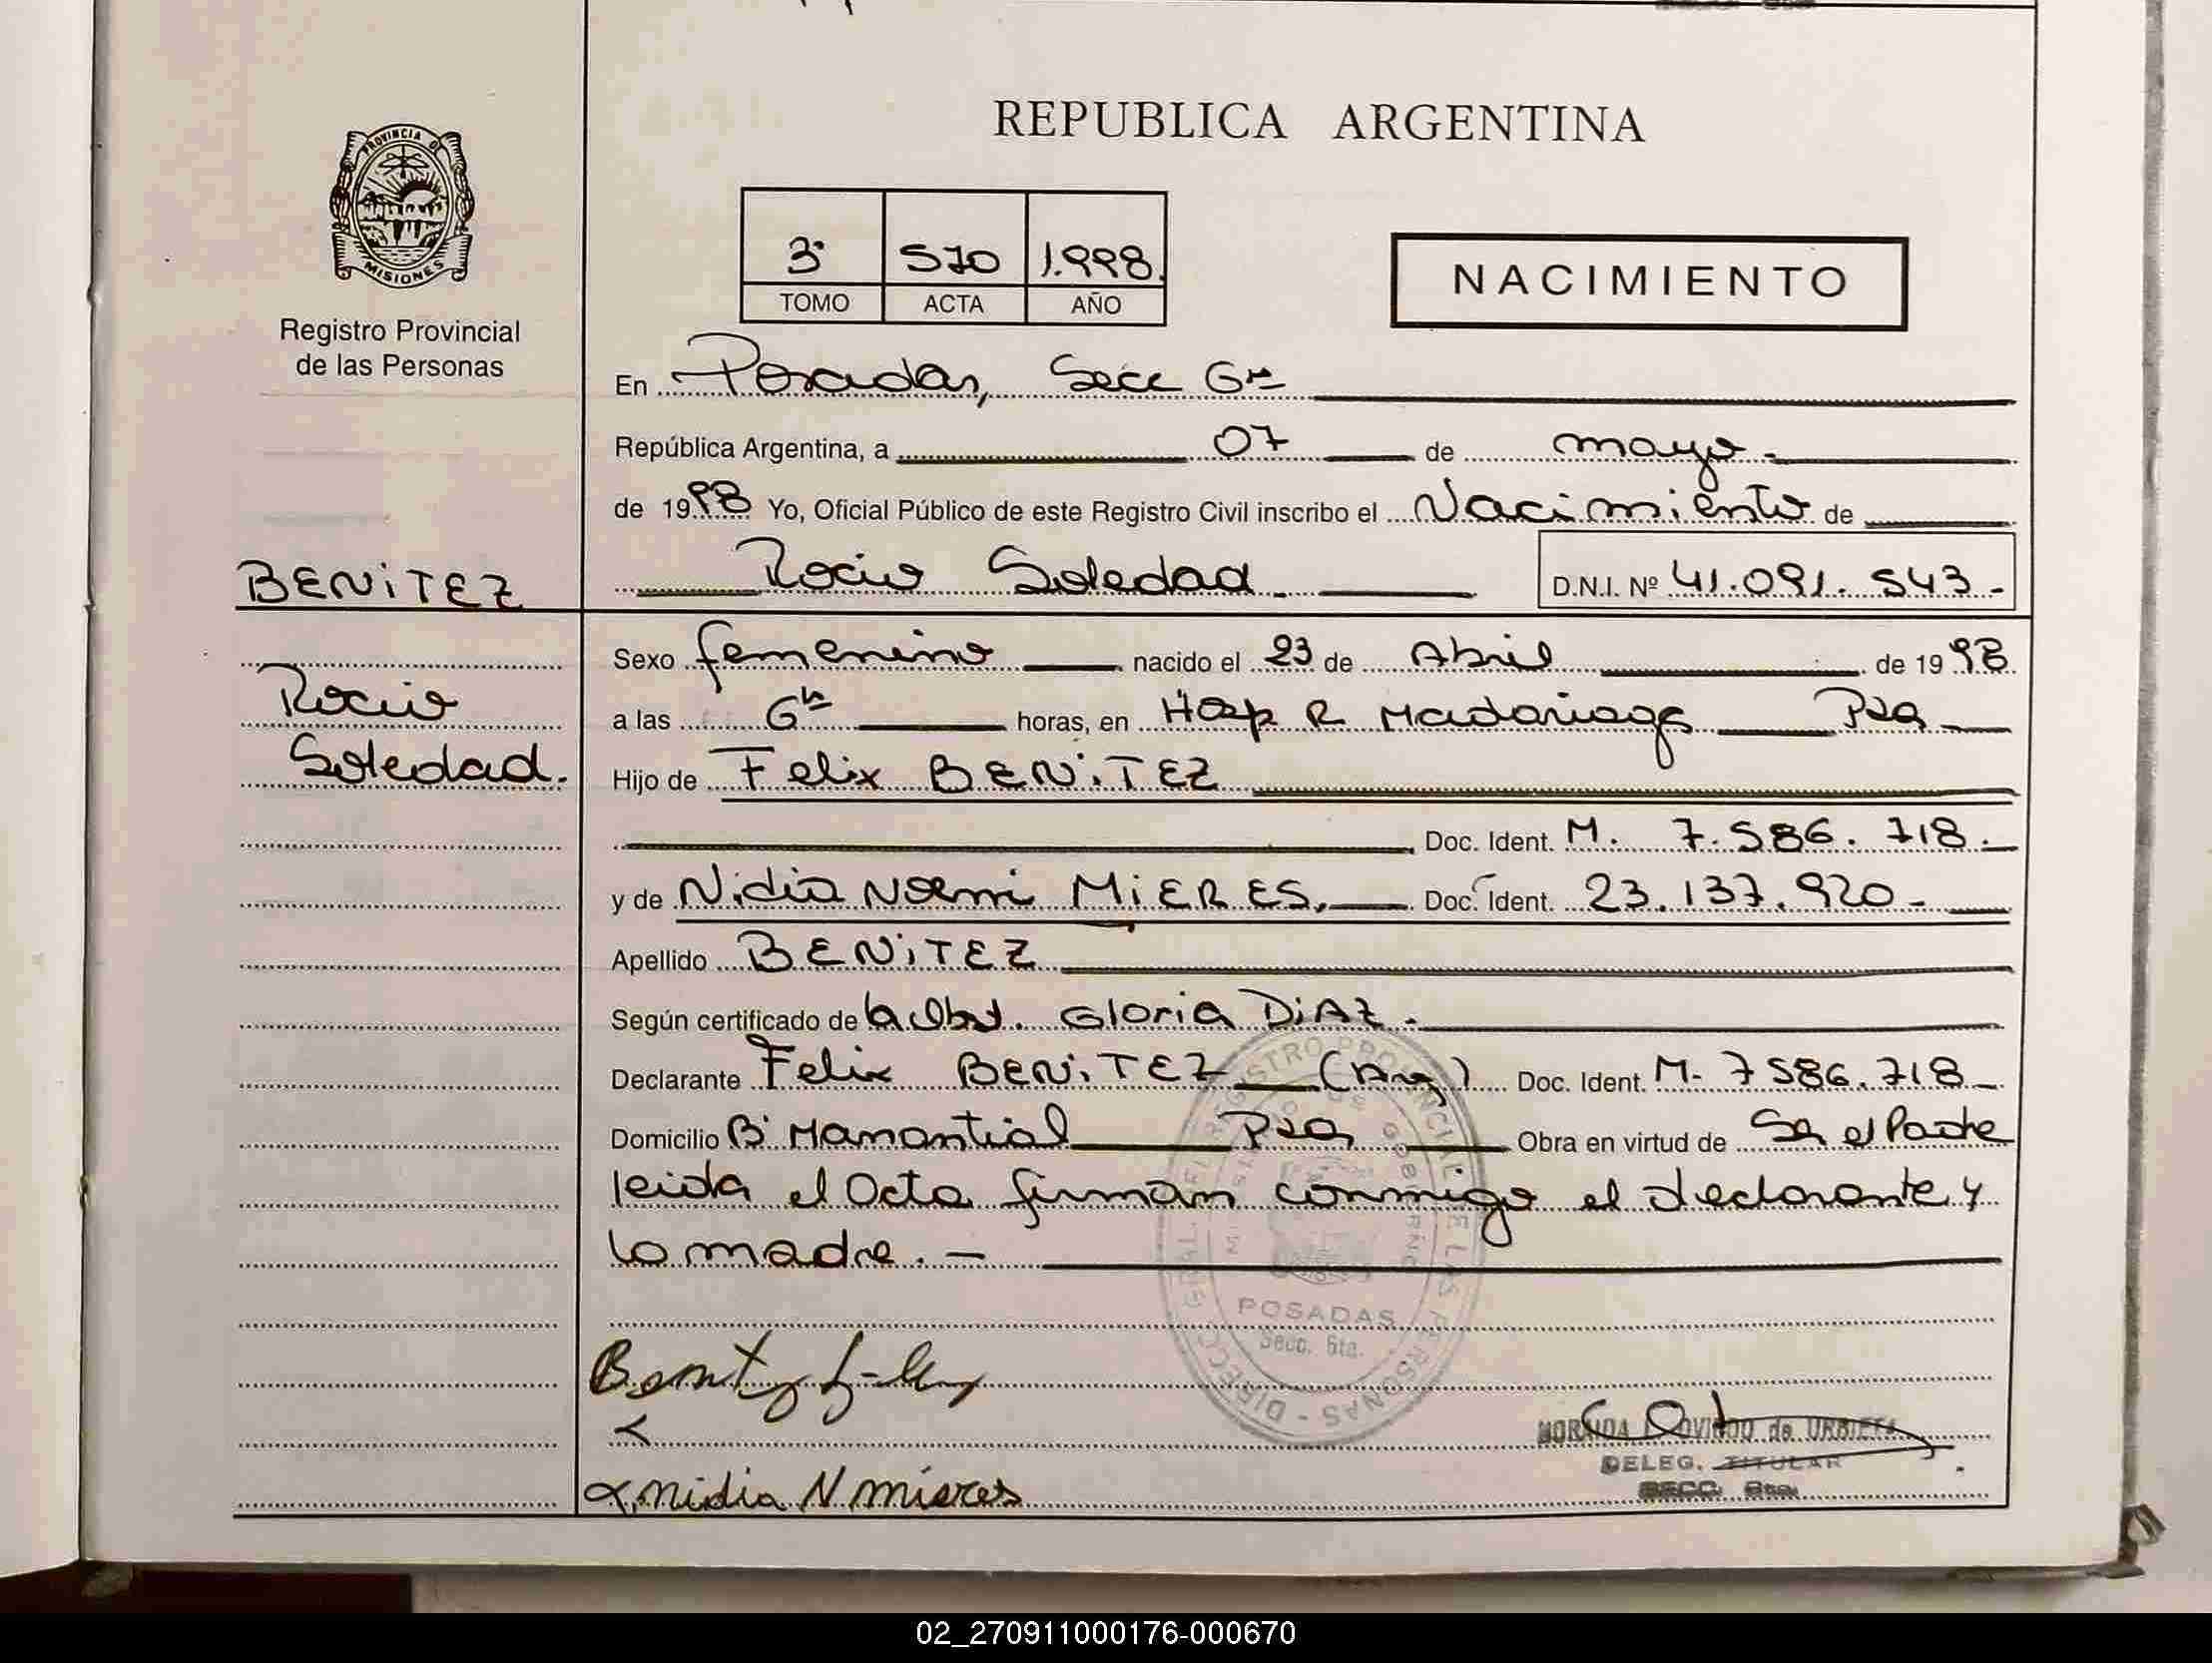 PROVINCIA DE
MISIONES
Registro Provincial
de las Personas
BENiTEZ
Rocio
Soledad.
REPUBLICA ARGENTINA
3º 570 1.998.
TOMO ACTA AÑO
NACIMIENTO
En Posadas, Secc 6ta
República Argentina, a 07 de mayo.-
de 1998 Yo, Oficial Público de este Registro Civil inscribo el Nacimiento de
Rocio Soledad.- D.N.I. Nº 41.091.543.-
Sexo femenino nacido el 23 de Abril de 1998
a las 6hs horas, en Hosp R Madariaga Psa
Hijo de Felix BENiTEZ
Doc. Ident. M. 7.586.718.-
y de Nidia Noemi MiERES,- Doc. Ident. 23.137.920-
Apellido BENiTEZ
Según certificado de la Obst. Gloria DiAZ.-
Declarante Felix BENiTEZ (Arg) Doc. Ident. M- 7586.718-
Domicilio Bº Manantial Psa Obra en virtud de Ser el Padre
leida el Acta firman conmigo el declarante y
la madre.-
DIRECC. GRAL. DEL REGISTRO PROVINCIAL DE LAS PERSONAS
POSADAS
Secc. 6ta.
OVIEDO de URBIETA
DELEG. TITULAR
SECC. 6ta.
nidia N mieres
02_270911000176-000670